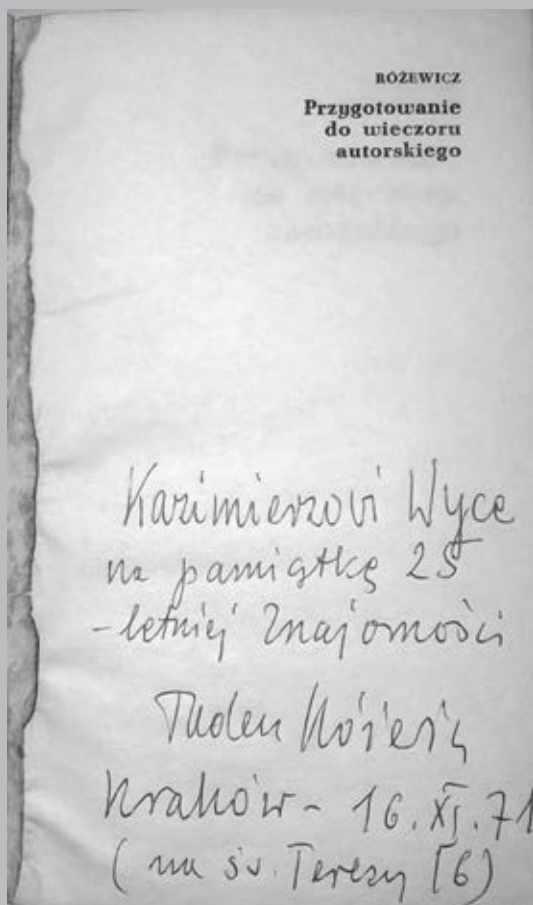 RÓŻEWICZ
Przygotowanie
do wieczoru
autorskiego
Kazimierzowi Wyce
na pamiątkę 25
-letniej znajomości
Kraków - 16.XI.71
( na św. Teresy [6)